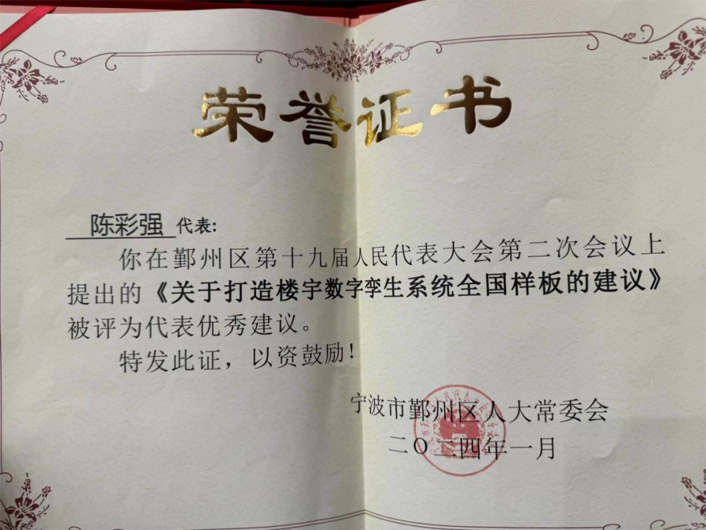 荣誉证书
陈彩强 代表:
你在鄞州区第十九届人民代表大会第二次会议上
提出的《关于打造楼宇数字孪生系统全国样板的建议》
被评为代表优秀建议。
特发此证，以资鼓励！
宁波市鄞州区人大常委会
二〇二四年一月